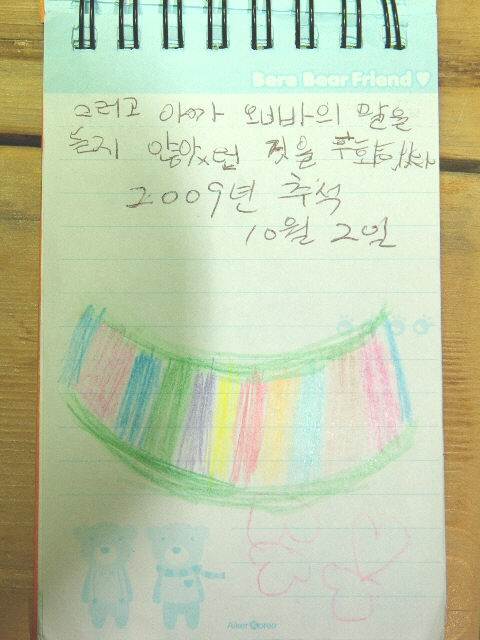 Bere Bear Friend ♥
그러고 아까 오빠의 말을
듣지 않았던 것을 후회하였다
2009년 추석
10월 2일
Aiker Korea